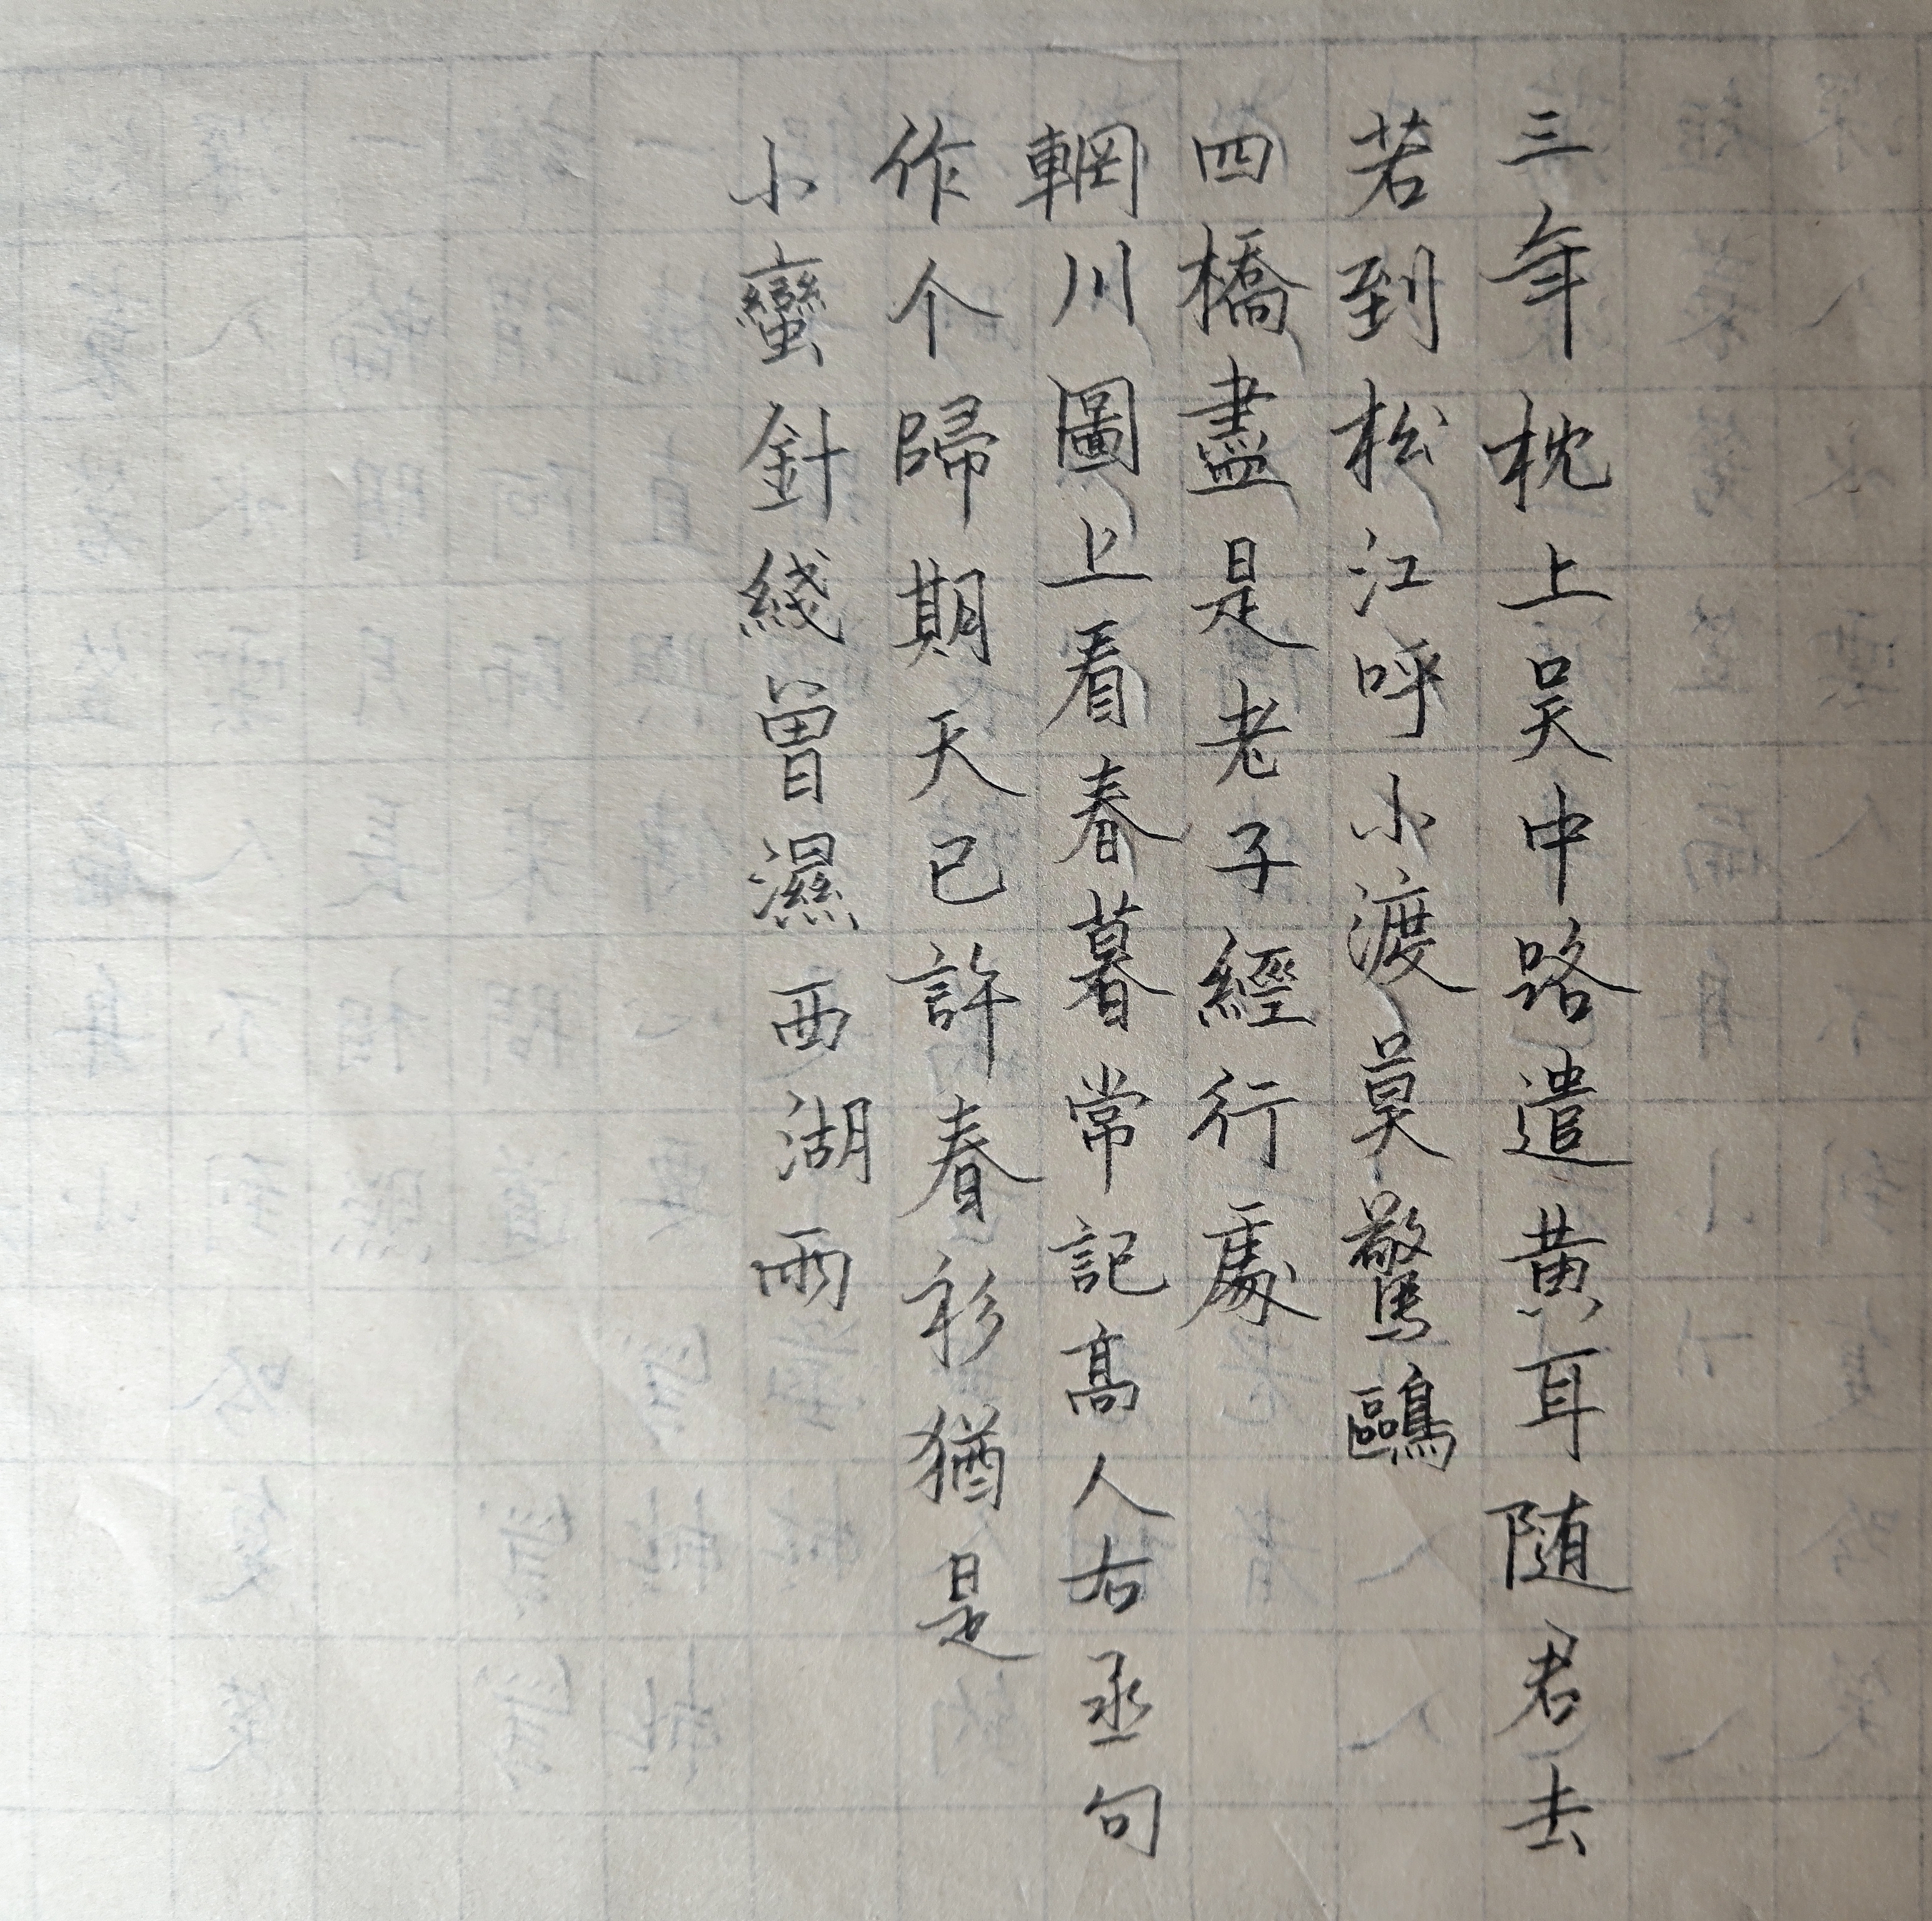 三年枕上吴中路遣黄耳随君去
若到松江呼小渡莫驚鷗
四橋盡是老子經行處
輞川圖上看春暮常記高人右丞句
作个歸期天已許春衫猶是
小蠻針綫曾濕西湖雨